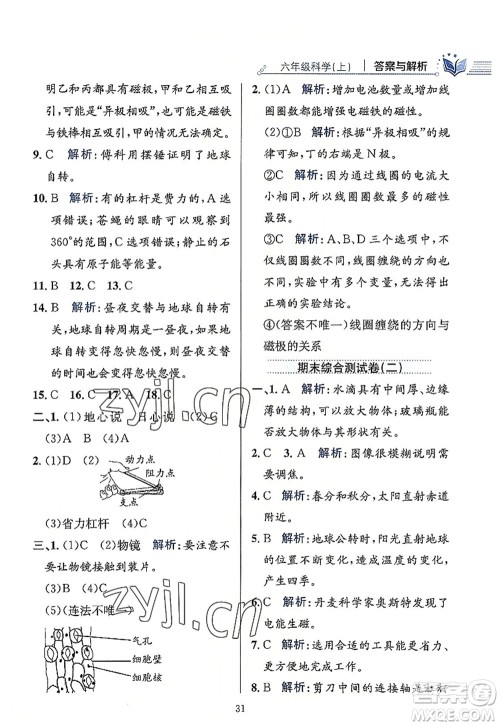 六年级科学(上) 答案与解析
明乙和丙都具有磁极,且乙和丙相互吸
引,可能是“异极相吸”,也可能是磁铁
与铁棒相互吸引,所以甲是不是磁铁,
无法确定。
9. C 解析:傅科用摆锤证明了地球
自转。
10. B 解析:有的杠杆是费力的,A 选
项错误;苍蝇的眼睛可以观察到
360°的范围,C 选项错误;静止的石
头具有原子能等能量,D 选项错误。
11. B 12. C 13. C
14. B 解析:昼夜交替与地球自转有
关,地球自转周期是一昼夜,当地球
自转变得忽快忽慢时,昼夜交替现
象变得忽快忽慢。
15. C 16. C 17. A 18. C
二、1. (1)地心说 日心说 (2)C
(3)A (4)C
2. (1)D (2)
动力点
阻力点
支点
(3)省力杠杆 (4)C
三、1. (1)C (2)物镜 解析:要注意不
要让物镜接触到装片。
(3)B (4)A
(5)(连法不唯一)
气孔
细胞壁
细胞核
2. (1)A 解析:增加电池数量和增加线
圈圈数都能增强电磁铁的磁性。
(2)①B 解析:根据“异极相吸”的规
律可知,丁的右端是 N 极。
②C 解析:因为通过线圈的电流大
小相同,所以线圈圈数最多的磁性
最强。
③C 解析:A、B、D 三个选项中,不
仅线圈圈数不同,缠绕方向也是不
同的,实验中出现了两个变量,所以
无法进行研究。
④(答案不唯一)线圈缠绕的方向与
磁极的关系
期末综合测试卷(二)
一、1. A 解析:水滴具有中间厚、边缘
薄的结构,可以放大物体,玻璃瓶能
否放大物体与其形状有关。
2. A 解析:图像很模糊说明可能需
要调焦。
3. C 解析:春分和秋分,太阳直射赤道
附近。
4. B 解析:地球公转时,阳光直射地球
的位置不断变化,造成了温度变化,
产生四季。
5. C 解析:丹麦科学家奥斯特发现了
电能生磁。
6. C 解析:选用合适的工具能使工作
更省力、更方便。
7. B 解析:剪刀中间的连接轴是
31
zyjl.cn
zyjl.cn